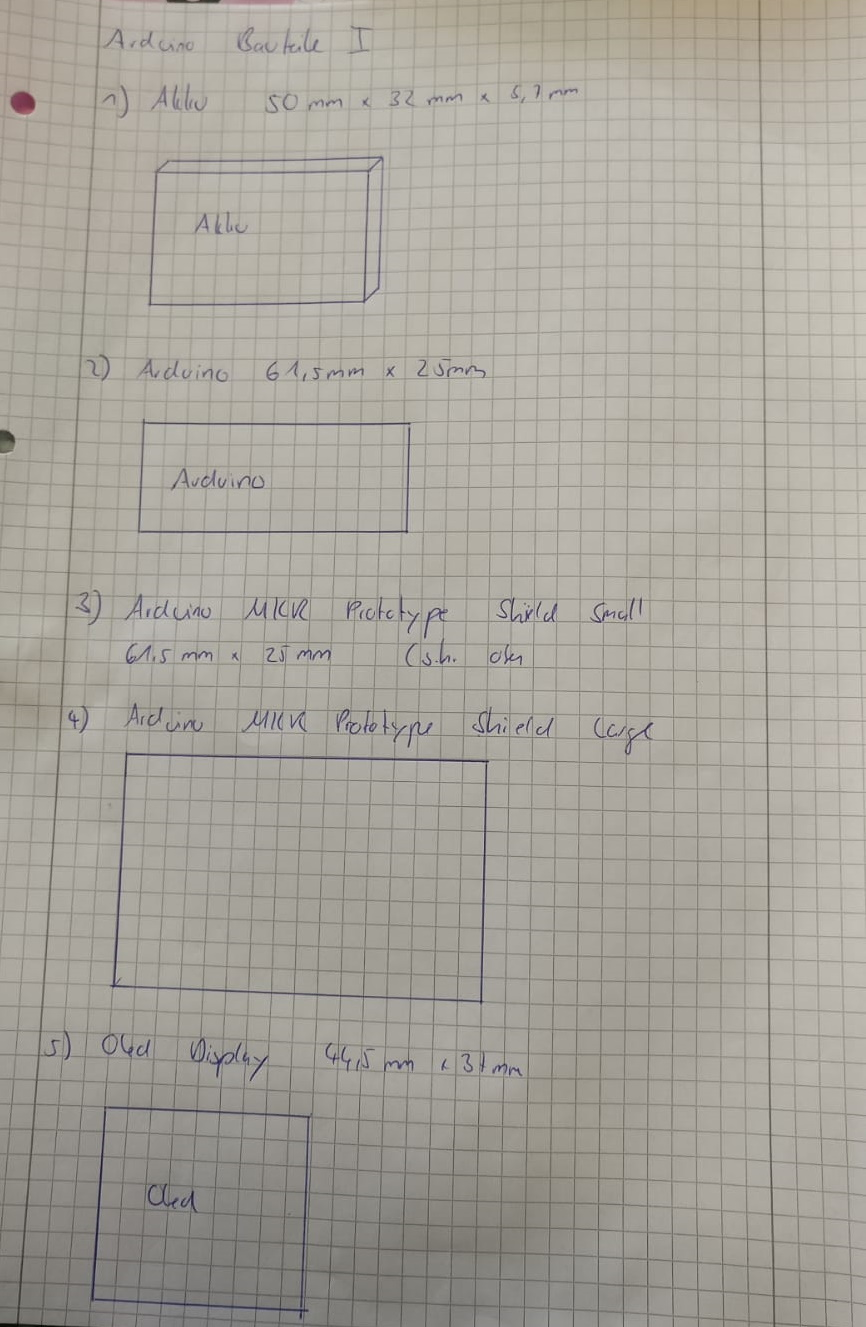 Arduino Bauteile I
1) Akku 50 mm x 32 mm x 5,7 mm
Akku
2) Arduino 61,5mm x 25mm
Arduino
3) Arduino MKR Prototype Shield Small
61,5 mm x 25 mm (s.h. oben
4) Arduino MKR Prototype Shield Large
5) Oled Display 44,5 mm x 37 mm
Oled